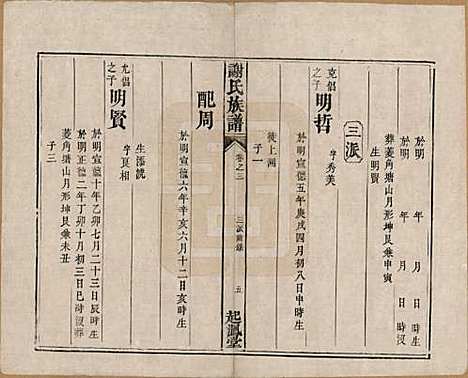 於明 年 月 日 時生
於明 年 月 日 時沒
葬菱角塘山月形坤艮兼申寅
生明賢
三派
克倡之子 明哲 字秀美
於明宣德五年庚戌四月初八日申時生
徙上湘
子一
謝氏族譜
卷之三
三派
五
起鳳堂
配周
於明宣德六年辛亥六月十二日亥時生
生添
允倡之子 明賢 字良相
於明宣德十年乙卯七月二十三日辰時生
於明正德二年丁卯十月初三日巳時沒葬
菱角塘山月形坤艮兼未丑
子三